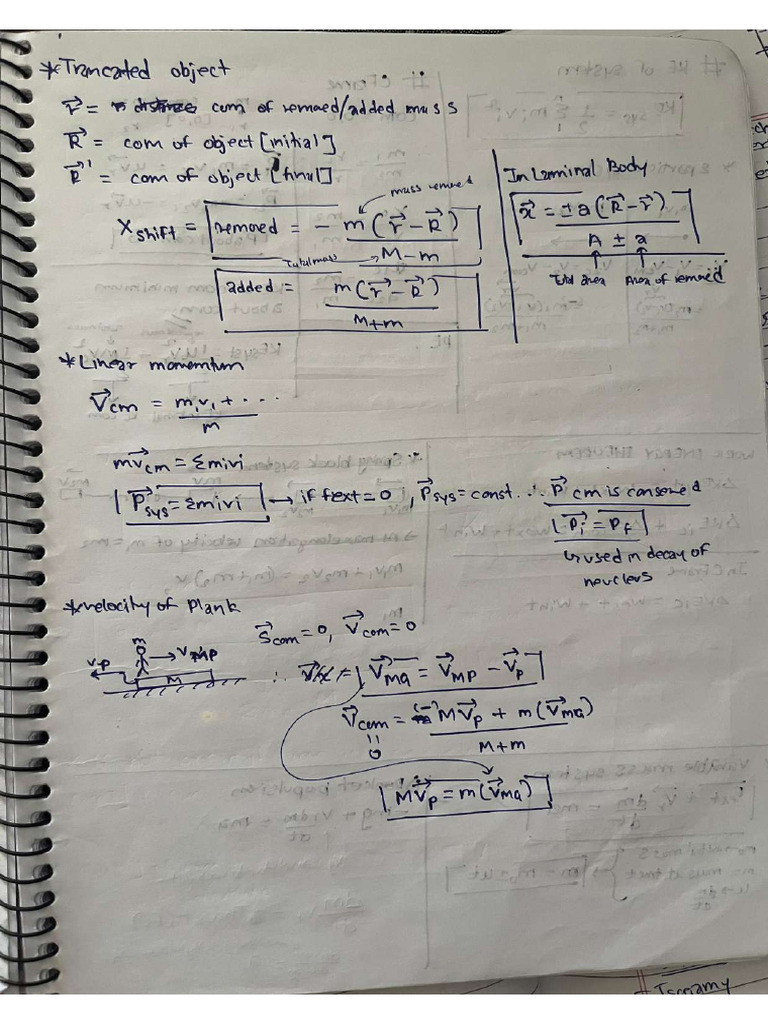 * Truncated object
r⃗ = com of remaed/added mass
R⃗ = com of object [initial]
R⃗' = com of object [final]
X shift = removed = - m(r⃗ - R⃗) / M - m
mass removed
Total mass
added = m(r⃗ - R⃗) / M + m
In Laminal Body
x⃗ = ± a(R⃗ - r⃗) / A ± a
Total area Area of removed
* Linear momentum
V⃗cm = m₁v₁ + ... / m
mv⃗cm = Σmivi
P⃗sys = Σmivi → if fext = 0, P⃗sys = const. ∴ P⃗cm is conserved
P⃗i = Pf
used in decay of
neucleus
* velocity of Plank
S⃗com = 0, V⃗com = 0
m
Vp
V MP
M
∴ V⃗MG = V⃗MP - V⃗P
V⃗com = (-) MV⃗P + m(V⃗MG) / M + m
0
MV⃗P = m(V⃗MG)